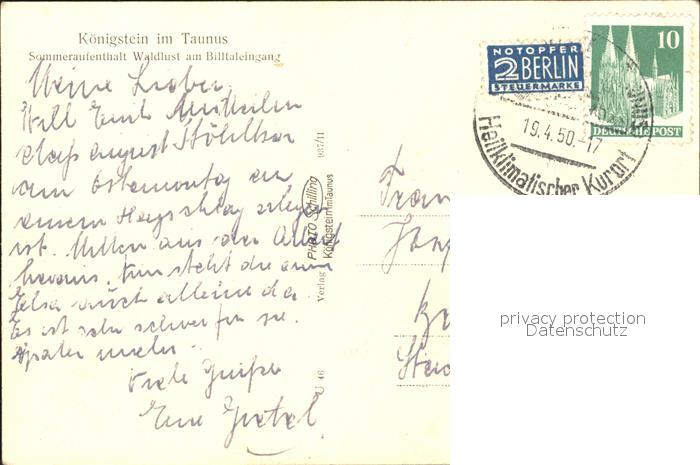 Königstein im Taunus
Sommeraufenthalt Waldlust am Billtaleingang
Meine Lieben,
Will Euch Mitteilen
dass august Stöhlker
am Ostermontag an
einem Herzschlag erlegen
ist. Mitten aus der Arbeit
heraus. Nun steht die arme
Elsa auch alleine da
Es ist sehr schwer für sie.
später mehr.
Viele Grüße
Eure Gretel
NOTOPFER
2 BERLIN
STEUERMARKE
10
DEUTSCHE POST
19.4.50.-17
Heilklimatischer Kurort
937/11
PHOTO Schilling
Königstein im Taunus
Verlag
U 46
privacy protection
Datenschutz